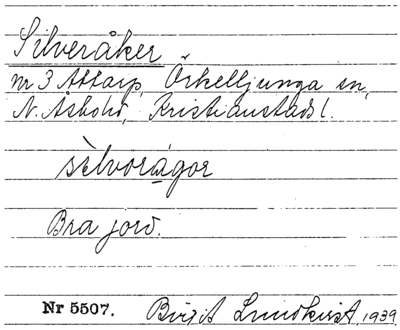 Silveråker
nr 3 Attarp, Örkelljunga sn,
N. Åsbohd, Kristianstads l.
sèlvorágor
Bra jord.
Nr 5507. Birgit Lundkvist, 1939